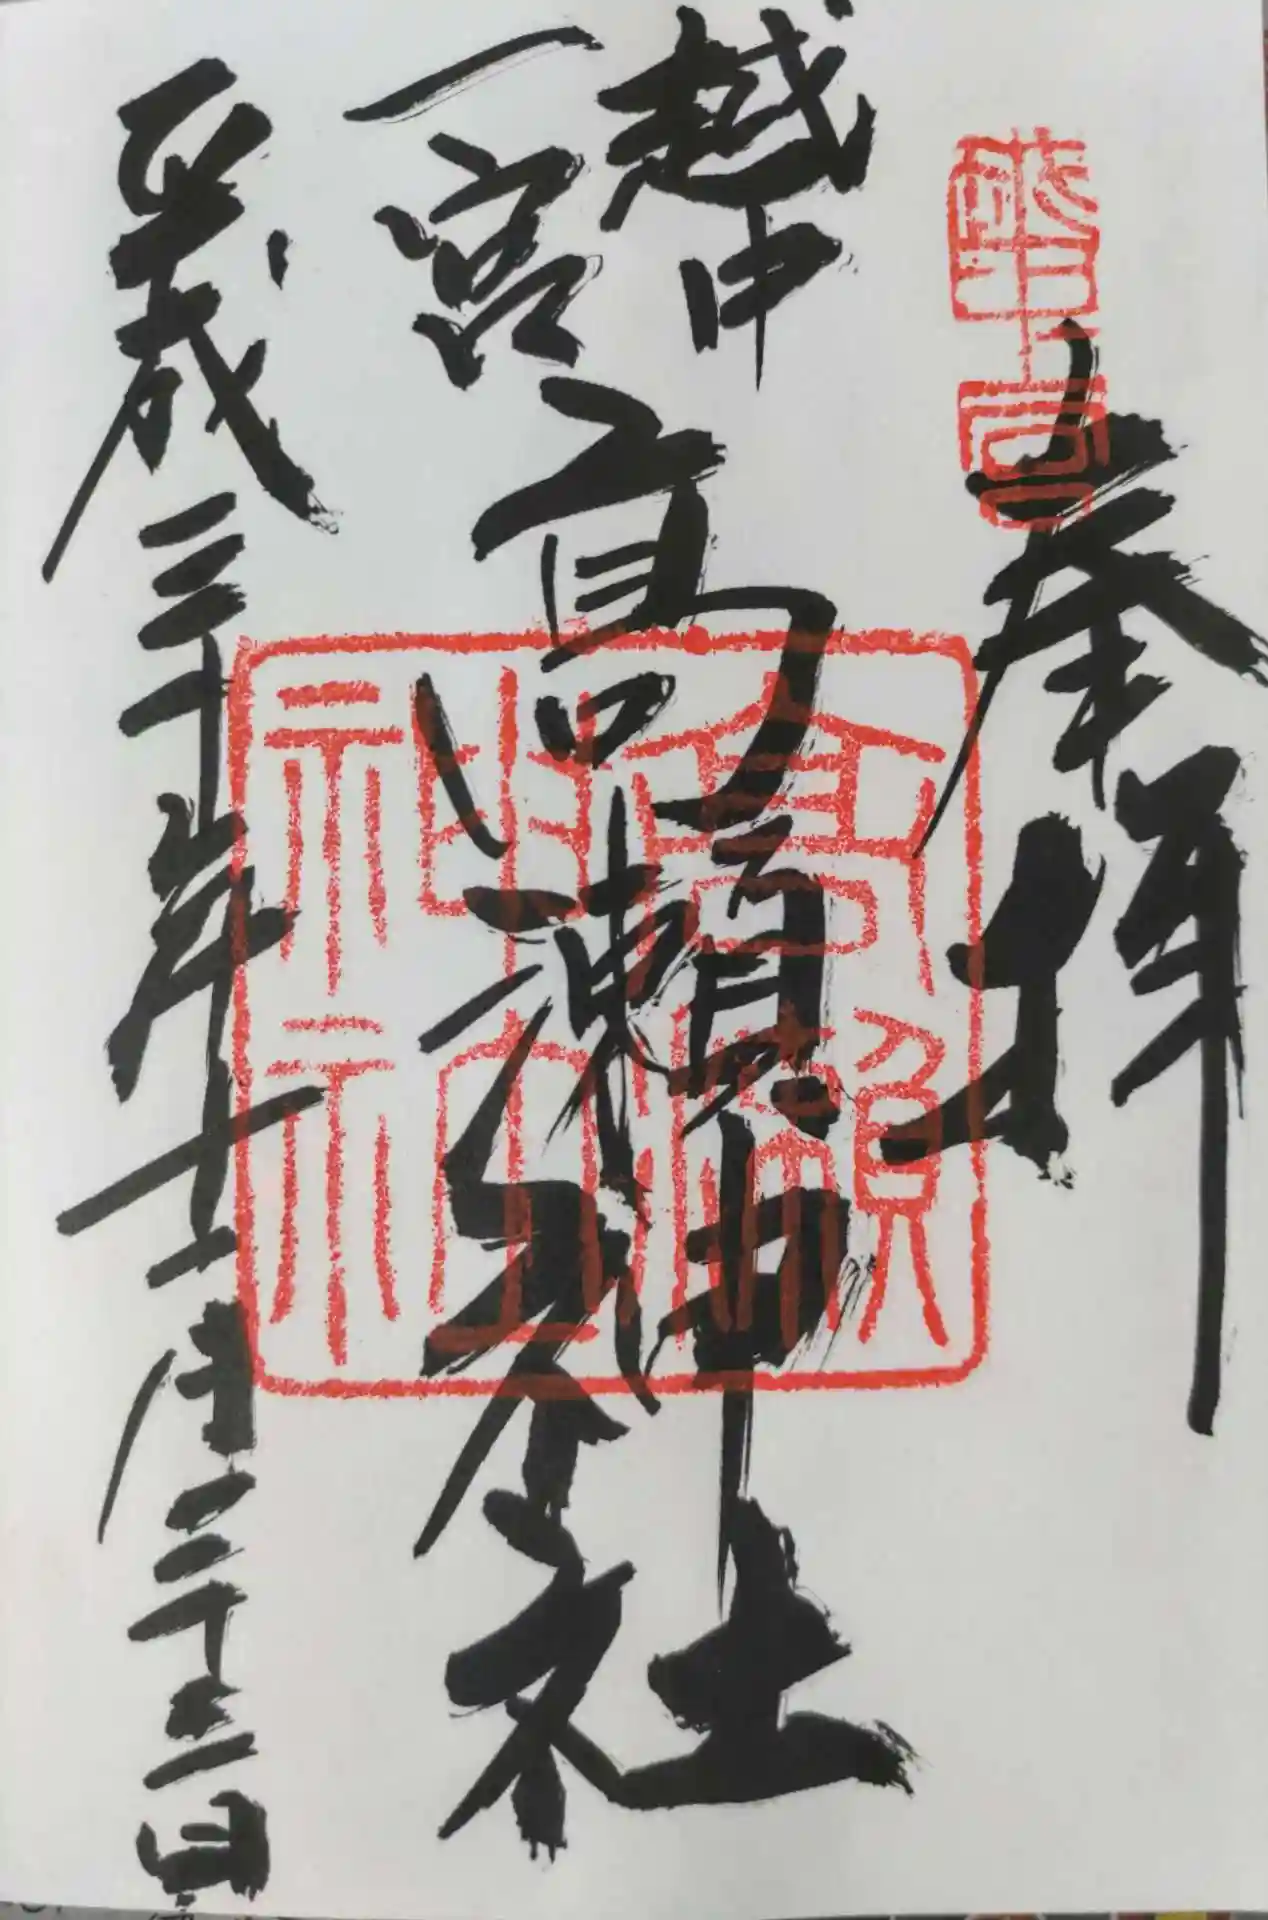 奉拝
越中
一宮
高瀬神社
高瀬
神社
平成三十年十一月二十三日